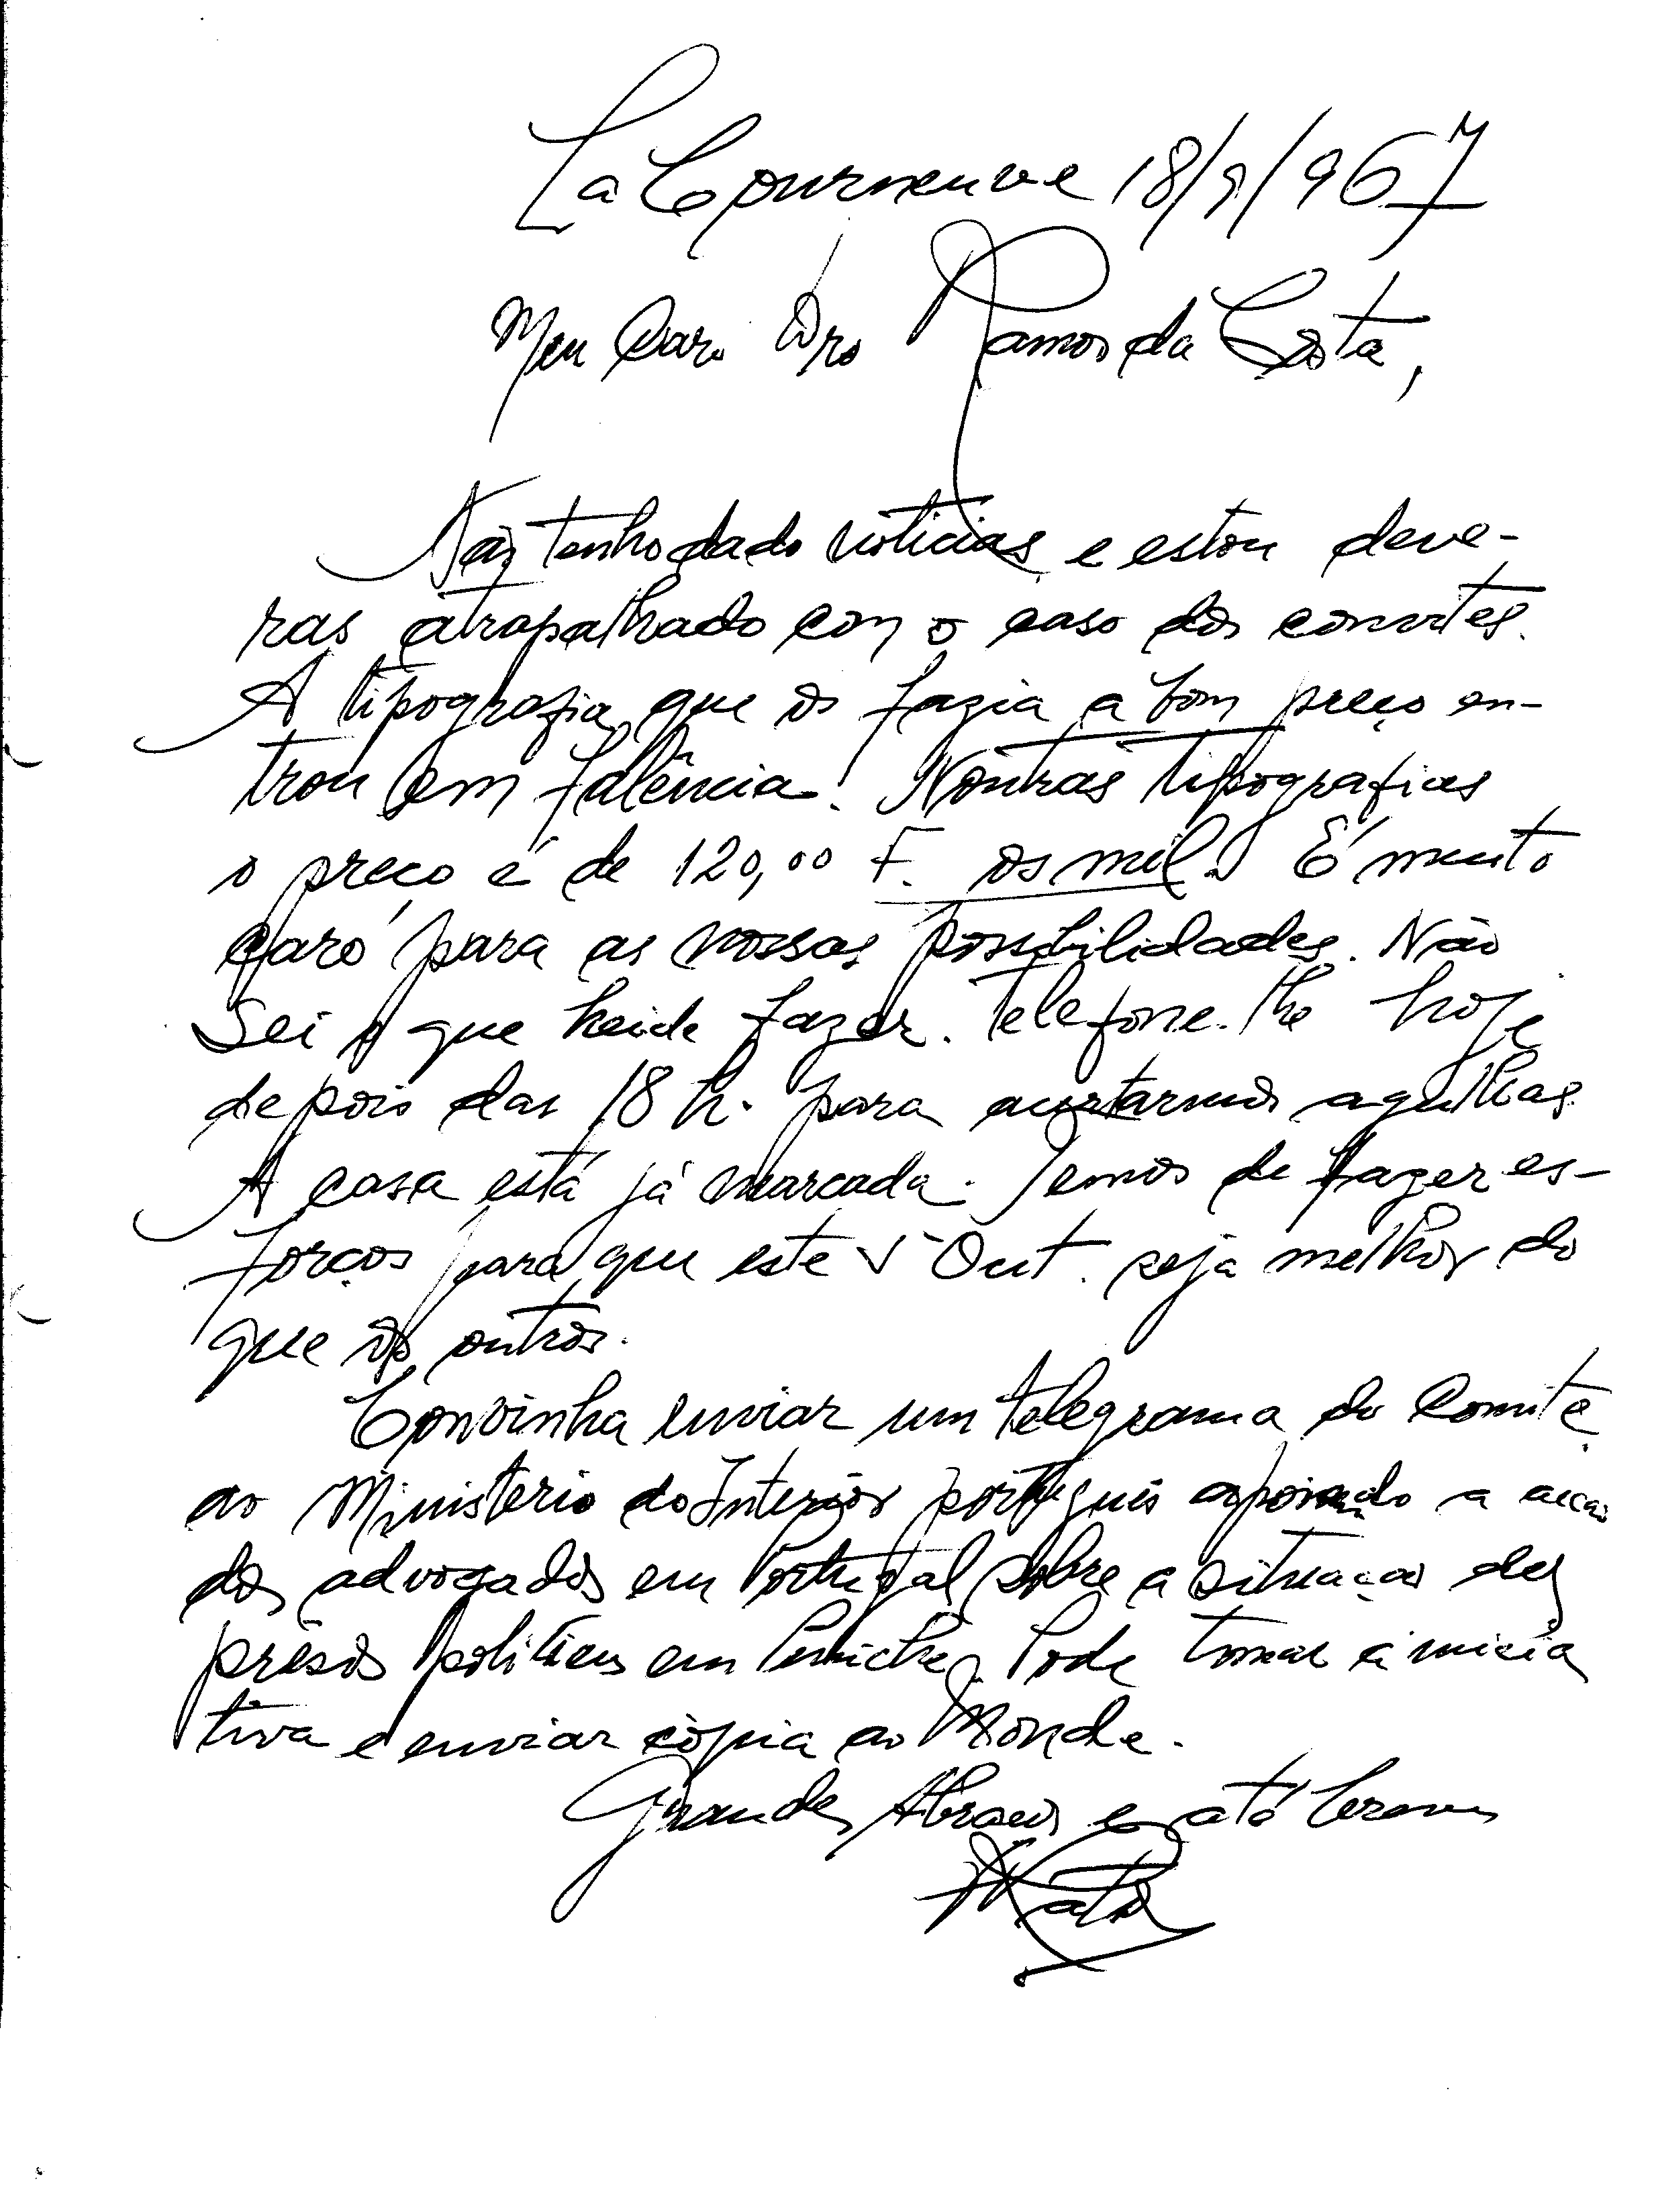 La Courneuve 18/9/967
Meu Caro Dro Ramos da Costa,
Não tenho dado noticias e estou deve-
ras atrapalhado com o caso dos convites.
A tipografia que os fazia a bom preço en-
trou em falência! Noutras tipografias
o preço é de 120,00 F. os mil. É muito
caro para as nossas possibilidades. Não
sei o que heide fazer. Telefone-lhe hoje
depois das 18 h. para acertarmos agulhas.
A casa está já marcada. Temos de fazer es-
forços para que este 5 Out. seja melhor do
que os outros.
Convinha enviar um telegrama do Comité
ao Ministério do Interior português apoiando a acção
dos advogados em Portugal sobre a situação dos
présos politicos em Peniche. Pode tomar a inicia
tiva e enviar còpia ao Monde.
Grandes Abraços e até breve